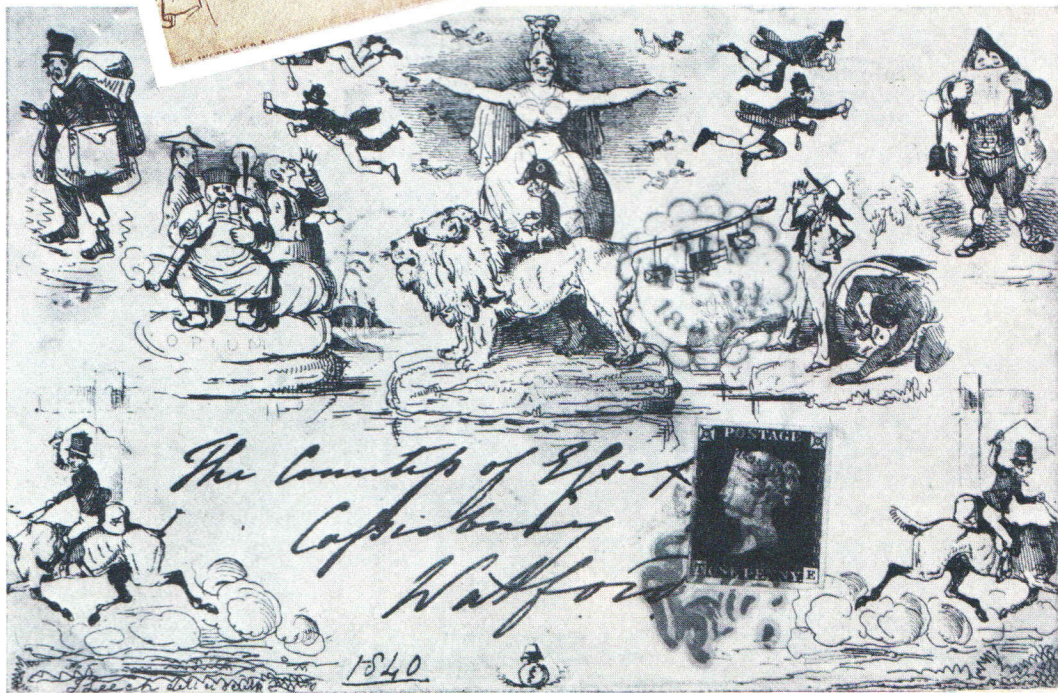 OPIUM
The Countess of Essex
Cassiobury
Watford
POSTAGE
ONE PENNY E
1840
Leech